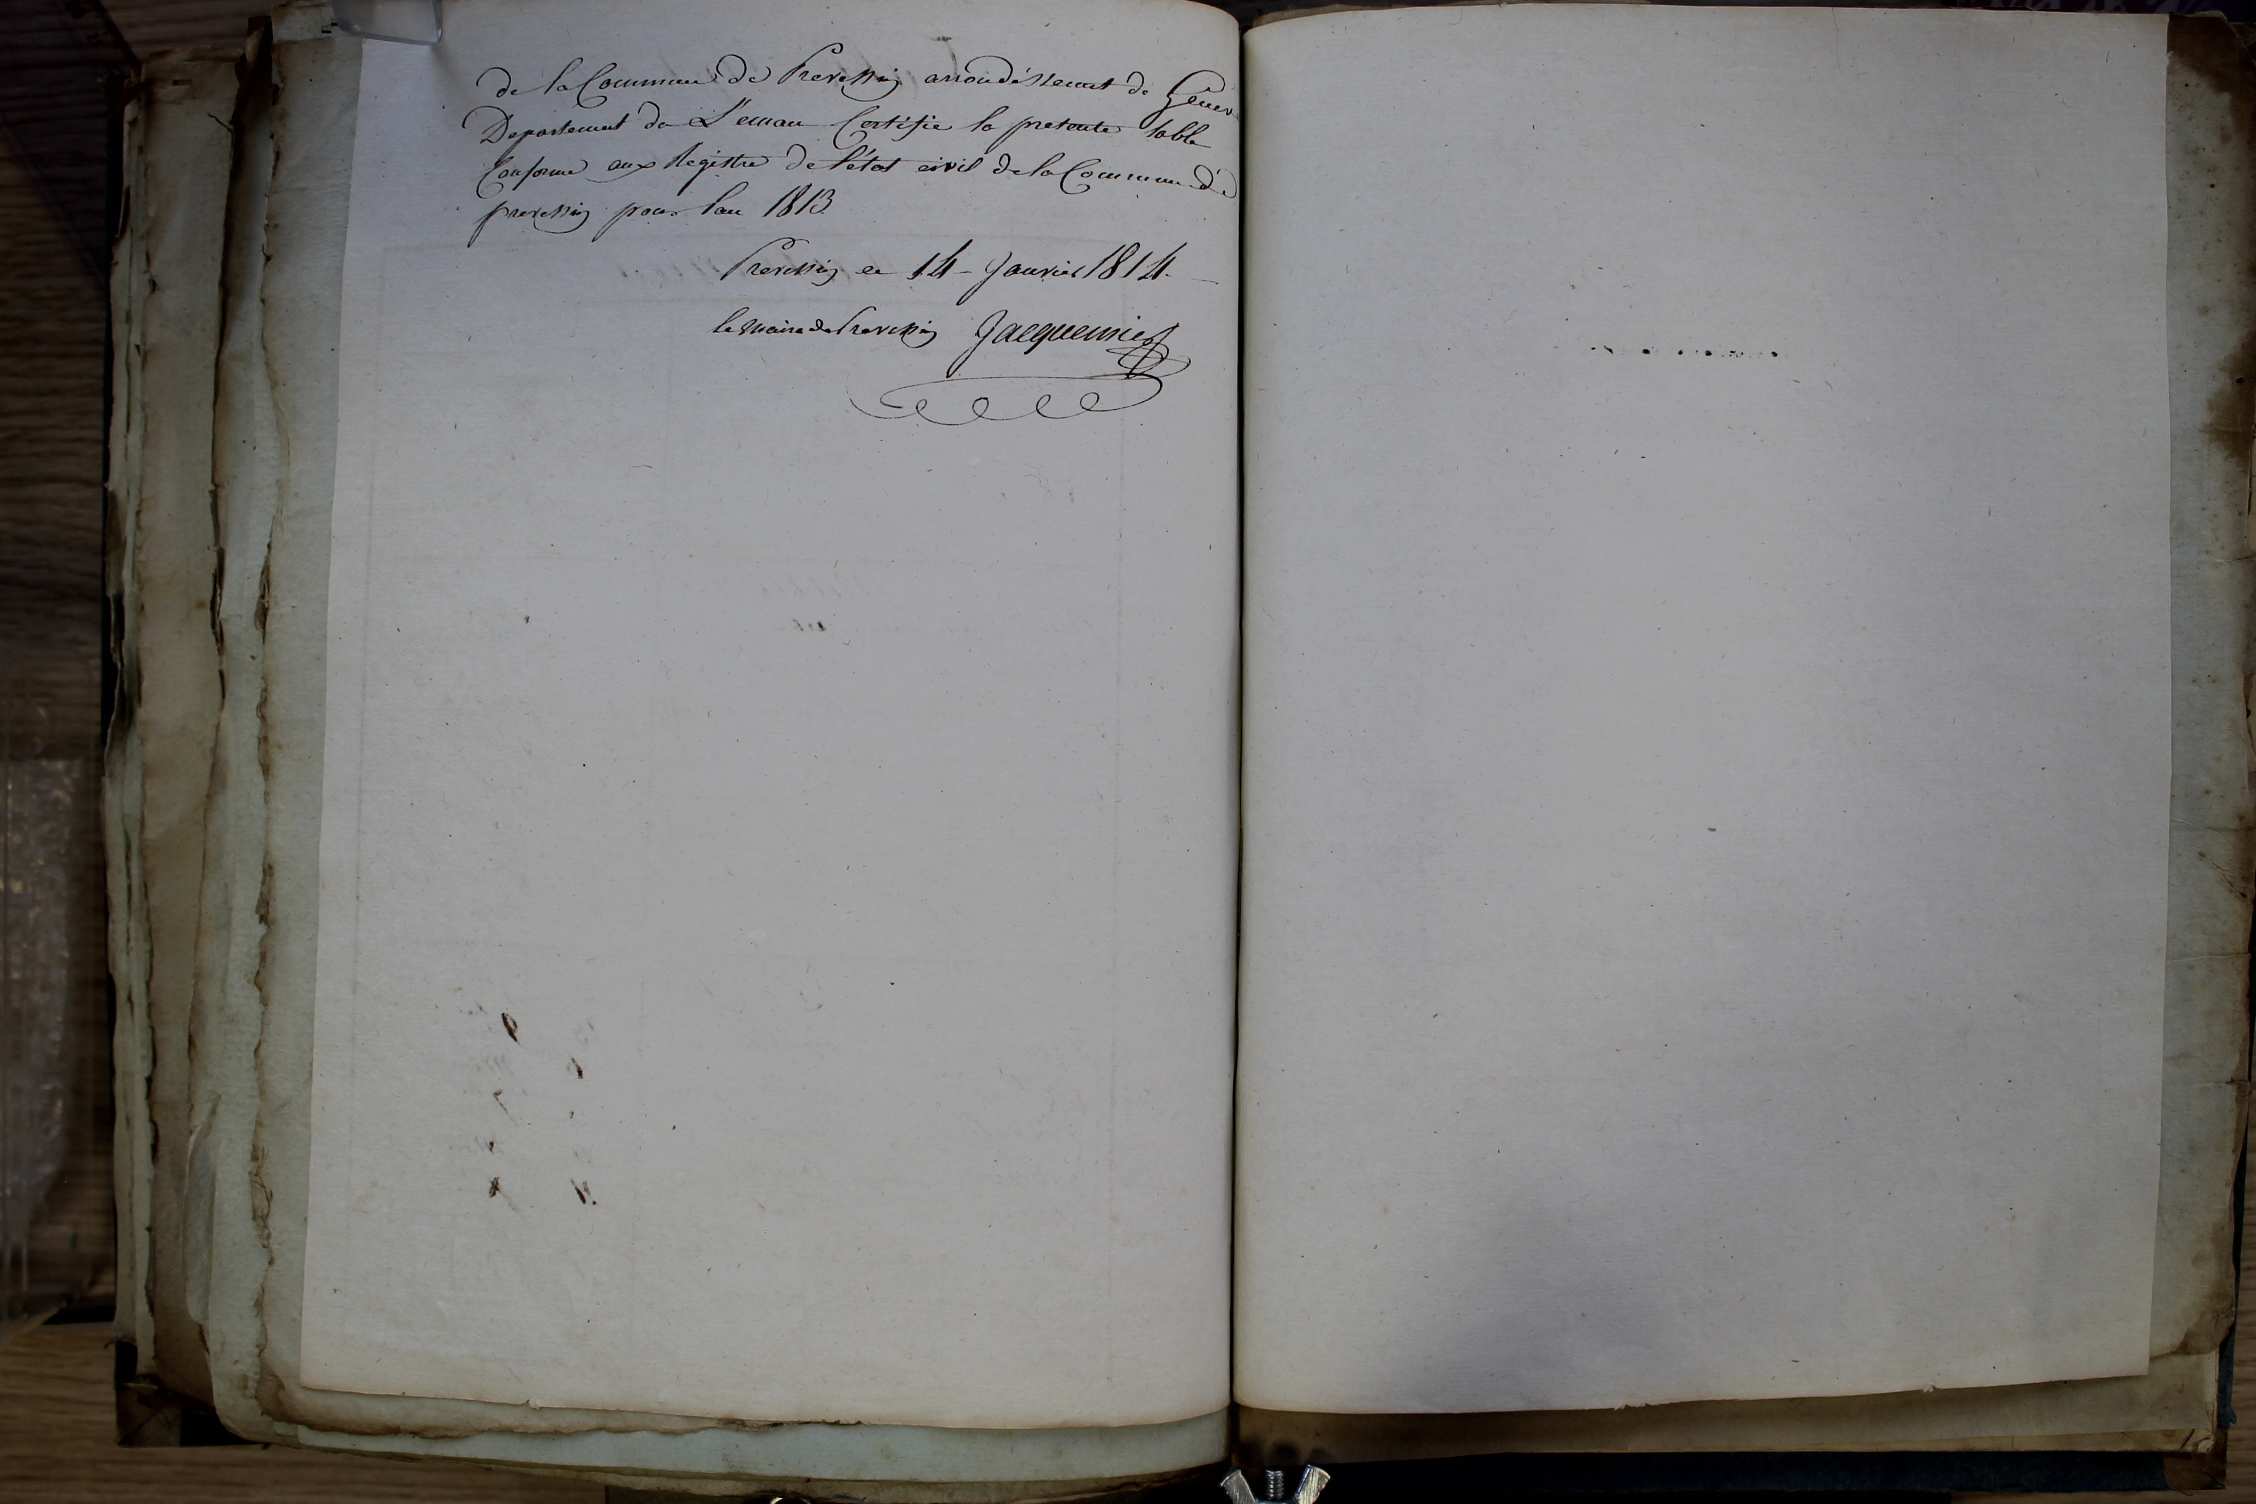 de la Commune de Prevessin arrondissement de Genev
Departement du Léman Certifie la presente table
Conforme aux Registre de l'état civil de la Commune de
prevessin pour lan 1813
Prevessin ce 14 - Janvier 1814. -
le Maire de Prevessin Jacquemier